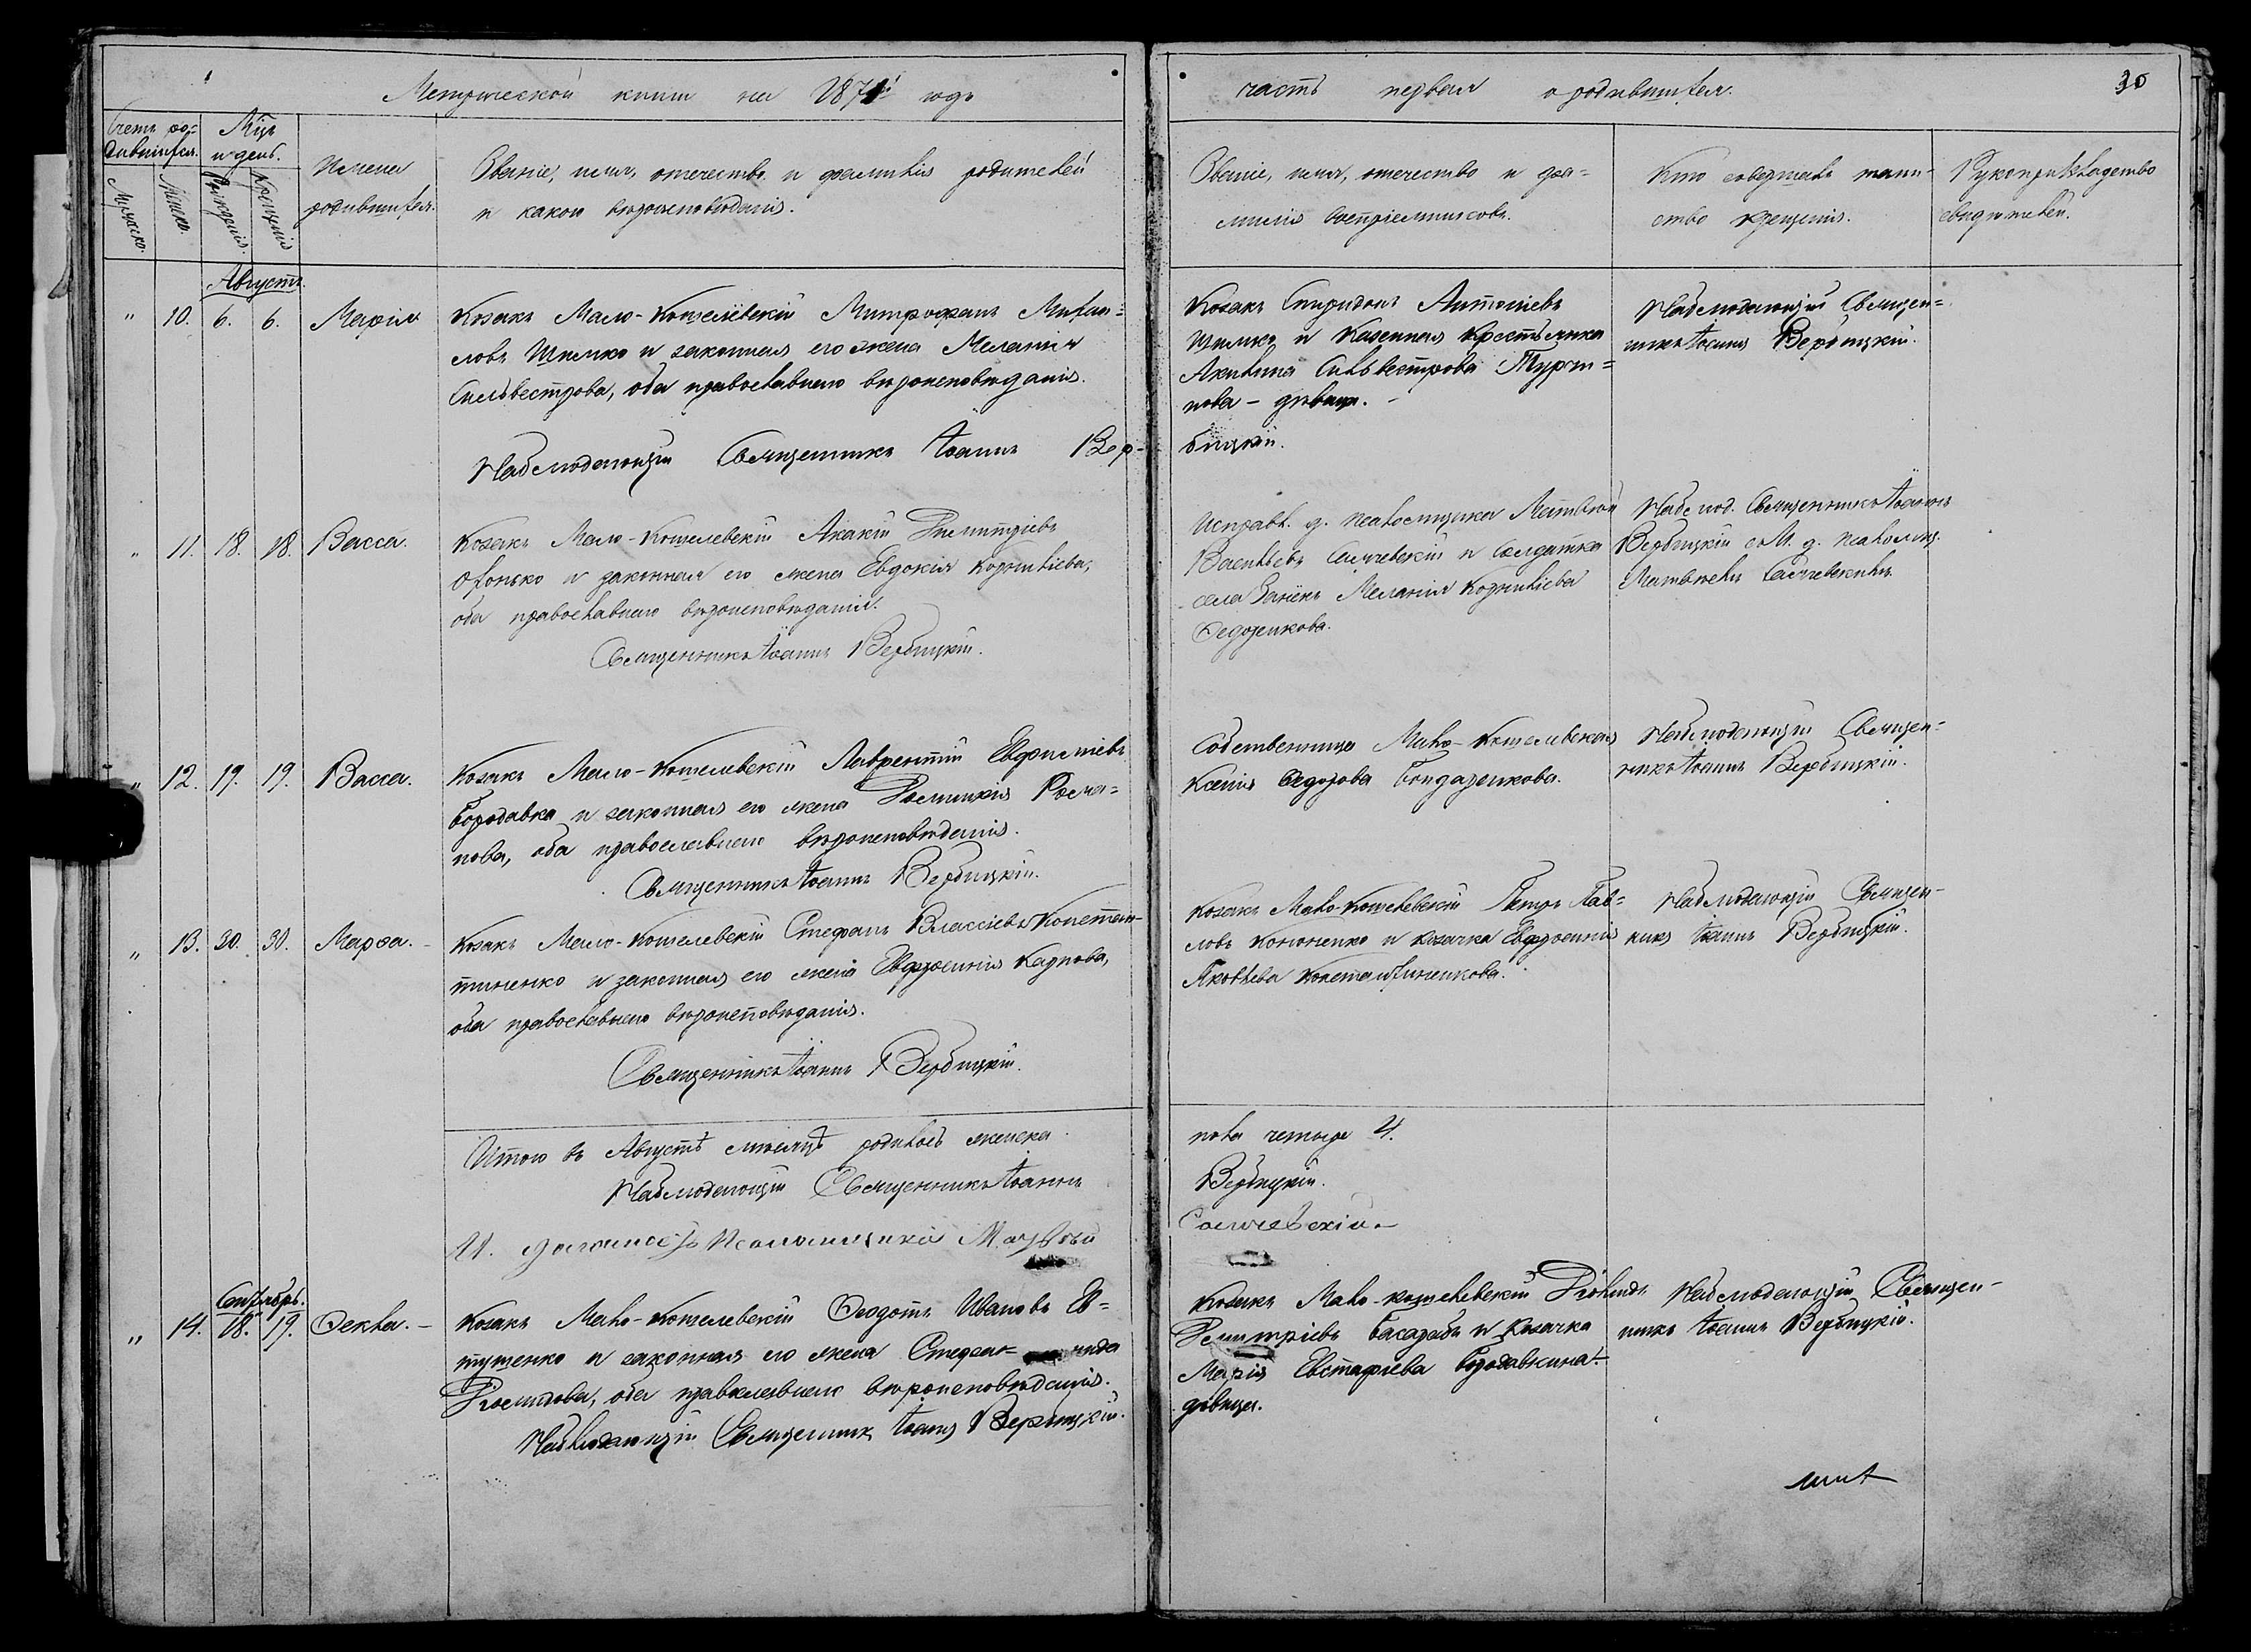 Метрической книги на 1871й годъ
часть первая о родившихся.
30
Счетъ ро-
дившихся.
Мцъ
и день.
Имена
родившихся.
Званіе, имя, отечество и фамилія родителей
и какого вѣроисповѣданія.
Званіе, имя, отечество и фа=
милія воспріемниковъ.
Кто совершалъ таин-
ство крещенія.
Рукоприкладство
свидѣтелей.
Мужеска.
Женска.
Рожденія.
Крещенія
Августъ.
" 10. 6. 6. Марія
Козакъ Мало-Кошелевскій Митрофанъ Михаи=
ловъ Шишко и законная его жена Меланія
Сильвестрова, оба православнаго вѣроисповѣданія.
Наблюдающій Священникъ Іоаннъ Вер-
Козакъ Спиридонъ Антоніевъ
Шишко и Казенная крестьянка
Акилина Сильвестрова
нова - дѣвица.
бицкій.
Наблюдающій Священ=
никъ Іоаннъ Вербицкій.
" 11. 18. 18. Васса.
Козакъ Мало-Кошелевскій Акакій Димитріевъ
Охонько и законная его жена Евдокія Корнилієва,
оба православнаго вѣроисповѣданія.
Священникъ Іоаннъ Вербицкій.
Исправл. д. псаломщика Матвѣй
Васильевъ Самчевскій и солдатка
села Меланія Корниліева
Федоренкова.
Наблюд. Священникъ Іоаннъ
Вербицкій съ И. д. псаломщ.
Матвѣемъ Самчевскимъ.
" 12. 19. 19. Васса.
Козакъ Мало-Кошелевскій Лаврентій Евфиміевъ
Бородавка и законная его жена Домникія Рома=
нова, оба православнаго вѣроисповѣданія.
Священникъ Іоаннъ Вербицкій.
Собственница Мало-Кошелевская
Ксенія Федорова Бондаренкова.
Наблюдающій Священ=
никъ Іоаннъ Вербицкій.
" 13. 30. 30. Марѳа.
Козакъ Мало-Кошелевскій Стефанъ Власіевъ Констан-
тиненко и законная его жена Евфросинія Карпова,
оба православнаго вѣроисповѣданія.
Священникъ Іоаннъ Вербицкій.
Козакъ Мало-Кошелевскій Петръ Пав=
ловъ Кононенко и козачка Евфросинія
Яковлева Константиненкова.
Наблюдающій Священ-
никъ Іоаннъ Вербицкій.
Итого въ Августѣ мѣсяцѣ родилось женска
пола четыре 4.
Наблюдающій Священникъ Іоаннъ
Вербицкій.
И. должность Псаломщика Матвѣй
Самчевскій.
Сентябрь.
" 14. 18. 19. Ѳекла.
Козакъ Мало-Кошелевскій Ѳеодотъ Ивановъ Ев=
тушенко и законная его жена Степан= ида
Діомидова, оба православнаго вѣроисповѣданія.
Наблюдающій Священникъ Іоаннъ Вербицкій.
Козакъ Мало-Кошелевскій Діомидъ
Димитріевъ Басарабъ и Козачка
Марія Евстафіева Бородавкина
дѣвица.
Наблюдающій Священ-
никъ Іоаннъ Вербицкій.